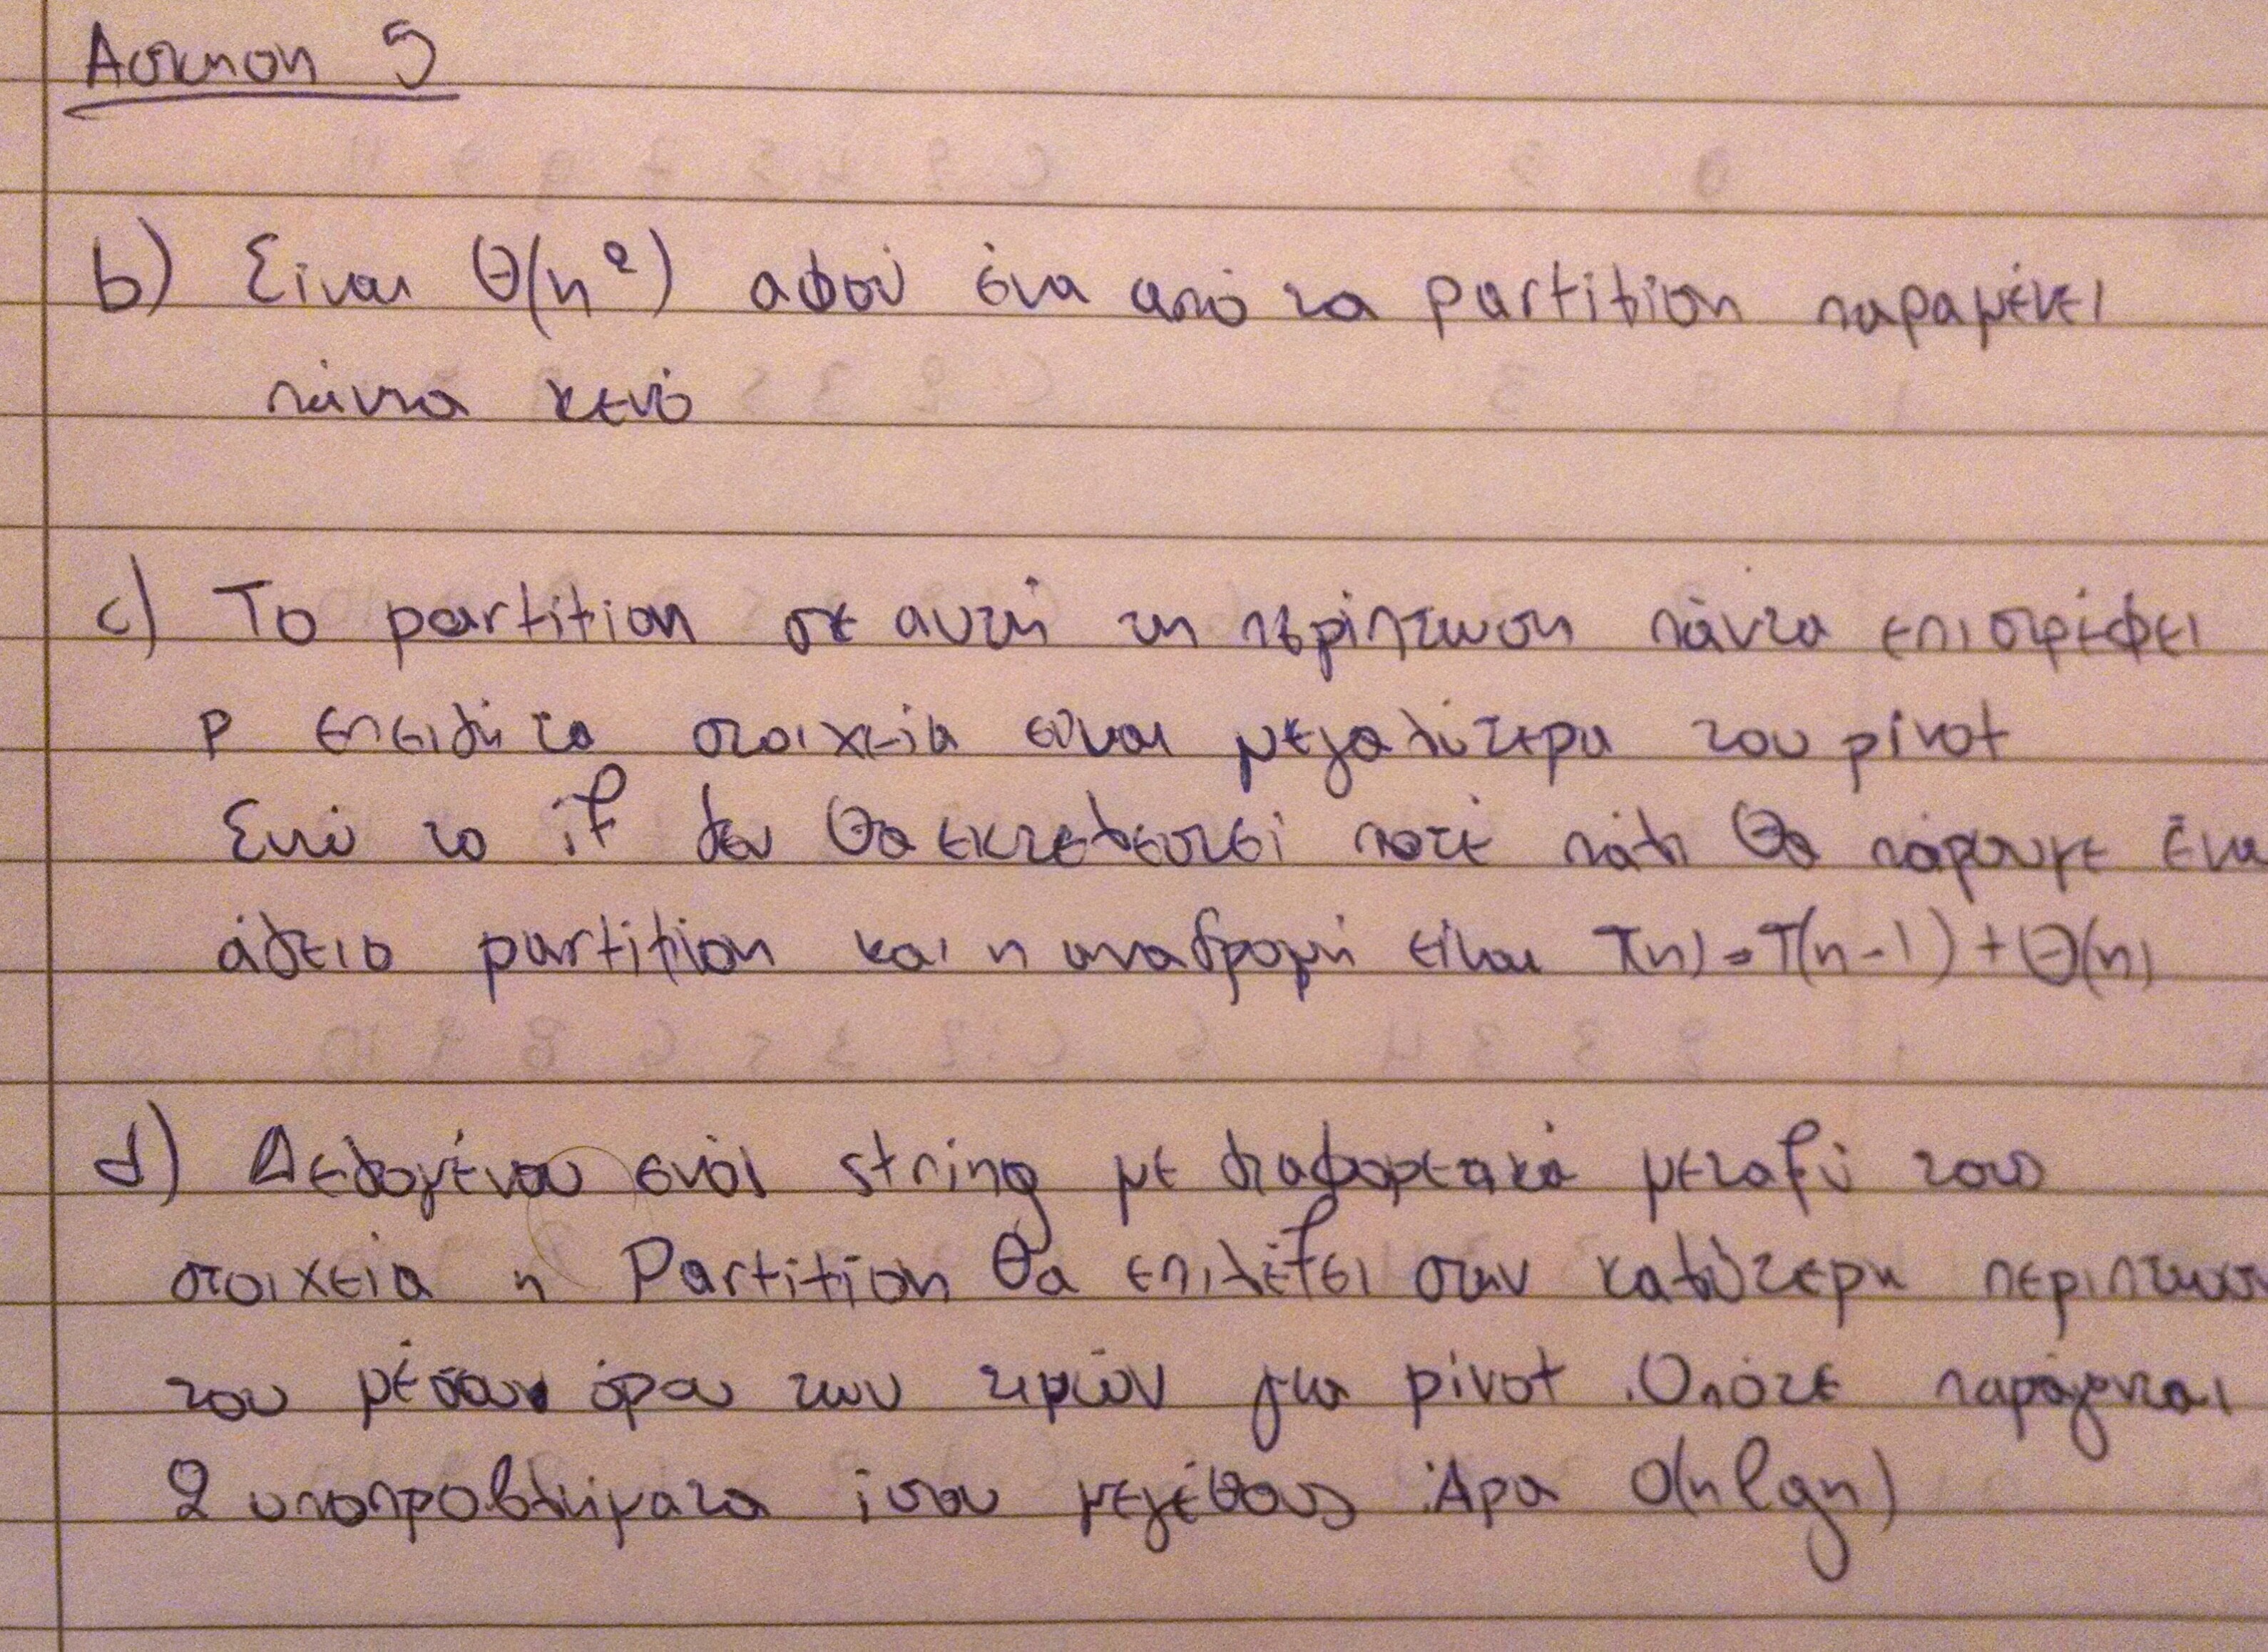 Άσκηση 5
b) Είναι Θ(n²) αφού ένα από τα partition παραμένει
πάντα κενό
c) Το partition σε αυτή τη περίπτωση πάντα επιστρέφει
p επειδή τα στοιχεία είναι μεγαλύτερα του pivot
Ενώ το if δεν θα εκτελεστεί ποτέ πάλι θα πάρουμε ένα
άδειο partition και η αναδρομή είναι T(n)=T(n-1)+Θ(n)
d) Δεδομένου ενός string με διαφορετικά μεταξύ τους
στοιχεία η Partition θα επιλέξει στην καλύτερη
του μέσου όρου των τιμών για pivot. Οπότε παράγονται
2 υποπροβλήματα ίσου μεγέθους. Άρα O(nlgn)